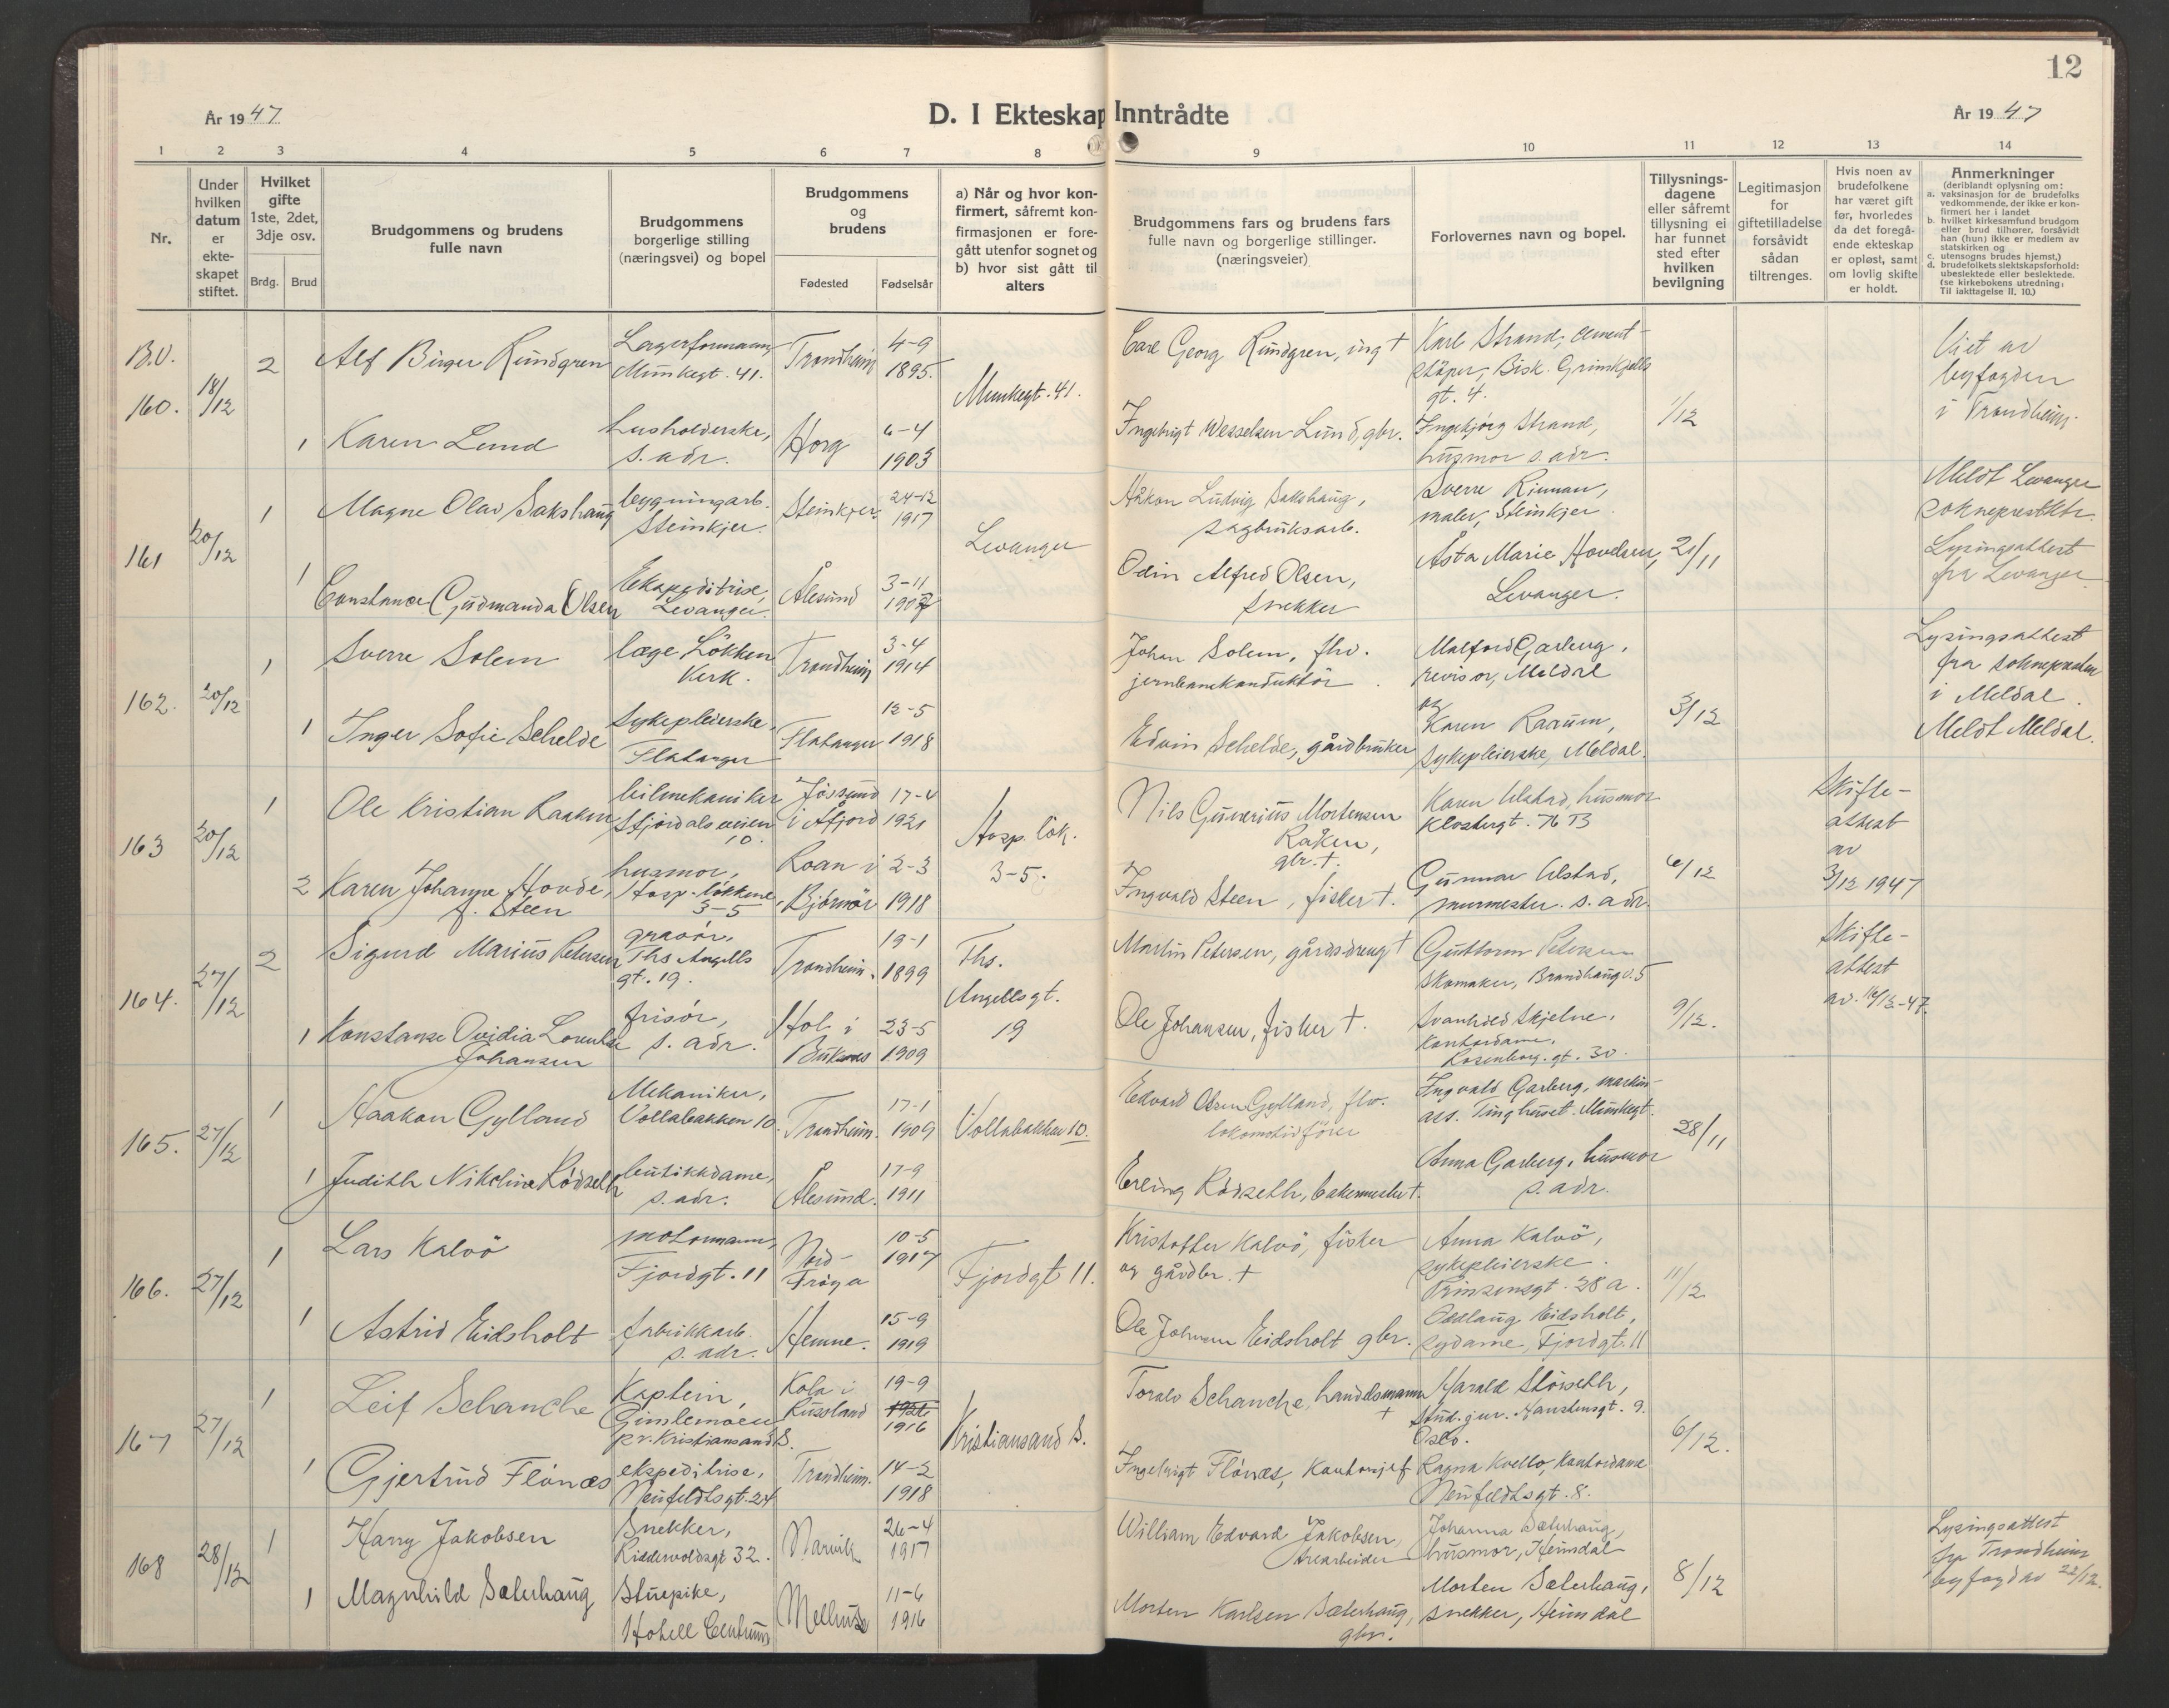 12
År 1947
D. I Ekteskap Inntrådte
År 1947
1 2 3 4 5 6 7 8 9 10 11 12 13 14
Nr.
Under hvilken datum er ekteskapet stiftet.
Hvilket gifte 1ste, 2det, 3dje osv.
Brdg. Brud
Brudgommens og brudens fulle navn
Brudgommens borgerlige stilling (næringsvei) og bopel
Brudgommens og brudens
Fødested Fødselsår
a) Når og hvor konfirmert, såfremt konfirmasjonen er foregått utenfor sognet og b) hvor sist gått til alters
Brudgommens fars og brudens fars fulle navn og borgerlige stillinger. (næringsveier)
Forlovernes navn og bopel.
Tillysningsdagene eller såfremt tillysning ei har funnet sted efter hvilken bevilgning
Legitimasjon for giftetilladelse forsåvidt sådan tiltrenges.
Hvis noen av brudefolkene har været gift før, hvorledes da det foregående ekteskap er opløst, samt om lovlig skifte er holdt.
Anmerkninger
(deriblandt oplysning om:
a. vaksinasjon for de brudefolks vedkommende, der ikke er konfirmert her i landet
b. hvilket kirkesamfund brudgom eller brud tilhører, forsåvidt han (hun) ikke er medlem av statskirken og
c. utensogns brudes hjemst.)
d. brudefolkets slektskapsforhold: ubeslektede eller beslektede.
(se kirkebokens utredning: Til iakttagelse II. 10.)
B.V.
160. 18/12
2 Alf Birger Rundgren Lagerformann, Munkegt. 41. Trondheim 4-9 1895.
Munkegt. 41.
Carl Georg Rundgren, ing †
Karl Strand, cementstöper, Bisk. Grimkjells gt. 4.
Viet av byfogden i Trondheim.
1 Karen Lund husholderske, s. adr. Horg 6-4 1903
Ingebrigt Wesselsen Lund, gbr.
Ingebjørg Strand, husmor s. adr.
1/12
161 20/12
1 Magne Olav Sakshaug bygningarb. Steinkjer. Steinkjer. 24-12 1917
Levanger
Håkon Ludvig Sakshaug, sagbruksarb.
Sverre Rinnan, maler, Steinkjer.
Meldt Levanger sokneprestktr.
1 Constance Gudmanda Olsen Ekspeditrise, Levanger. Ålesund 3-11
Odin Alfred Olsen, snekker
Åsta Marie Hovelsen, Levanger.
Lysingsattest fra Levanger
162. 20/12
1 Sverre Solem læge Løkken Verk. Trondheim 3-4 1914
Johan Solem, fhv. jernbanekonduktör.
Malford Garberg, revisor, Meldal og
Lysingsattest fra soknepresten i Meldal.
1 Inger Sofie Schelde Sykepleierske, Flatanger Flatanger 12-5 1918
Edvin Schelde, gårdbruker
Karen Raaum, sykepleierske, Meldal.
3/12
Meldt Meldal.
163 20/12
1 Ole Kristian Raaken bilmekaniker Stjørdalsveien 10. Jössund i Åfjord 17-4 1921
Hosp. lök. 3-5.
Nils Gunerius Mortensen Raken, gbr. †.
Karen Ulstad, husmor Klostergt. 76 B
Skifteattest av 3/12 1947
2 Karen Johanne Hovde, f. Steen husmor, Hosp. løkkene 3-5 Roan i Bjørnör 2-3 1918
Ingvald Steen, fisker †.
Gunnar Ulstad, murmester. s. adr.
6/12
164. 27/12
2 Sigurd Marius Petersen gravør, Ths Angells gt. 19. Trondheim. 19-1 1899
Ths. Angells gt. 19
Martin Petersen, gårdsdreng †
Guttorm Petersen skomaker, Brandhaug v. 5
Skifteattest av. 16/12-47.
1 Konstanse Ovidia Lorentse Johansen frisør, s. adr. Hol i Buksnes 23-5 1909
Ole Johansen, fisker †.
Svanhild Skjelne, kontordame, Rosenborg. gt. 30.
9/12.
165. 27/12
1 Haakon Gylland Mekaniker, Vollabakken 10. Trondheim. 17-1 1909
Vollabakken 10.
Edvard Olsen Gylland, fhv. lokomotivfører
Ingvald Garberg, maskinass. Tinghuset. Munkegt.
28/11
1 Judith Nikoline Rødseth butikkdame, s. adr. Ålesund. 17-9 1911
Erling Rødseth, bakermester †.
Anna Garberg, husmor s. adr.
166. 27/12
1 Lars Kalvö motormann, Fjordgt. 11 Nord-Fröya 10-5 1917
Fjordgt 11.
Kristoffer Kalvö, fisker og gårdbr. †
Anna Kalvö, sykepleierske. Prinsensgt. 28a.
11/12
1 Astrid Eidsholt fabrikkarb. s. adr. Hemne. 15-9 1919
Ole Johnsen Eidsholt gbr.
Oddlaug Eidsholt, sydame, Fjordgt. 11
167 27/12
1 Leif Schanche Kaptein, Gimlemoen pr. Kristiansand S. Kola i Russland 19-9 1916
Kristiansand S.
Toralv Schanche, handelsmann †
Harald Støiseth, stud. jur. Oslo.
6/12.
1 Gjertrud Flønæs ekspeditrise, Neufeldtsgt. 24 Trondheim. 14-2 1918
Ingebrigt Flønæs, kontorsjef
Ragna Kvello, kontordame Neufeldtsgt. 8.
168 28/12
1 Harry Jakobsen Snekker, Riddervoldsgt 32. Narvik 26-4 1917
William Edvard Jakobsen, trearbeider
Johanna Sæterhaug, husmor, Heimdal
Lysingsattest fra Trondheim byfogd av 22/12.
1 Magnhild Sæterhaug Stuepike, Hotell Centrum Melhus 11-6 1916
Morten Karlsen Sæterhaug, gbr.
Morten Sæterhaug, snekker, Heimdal
8/12